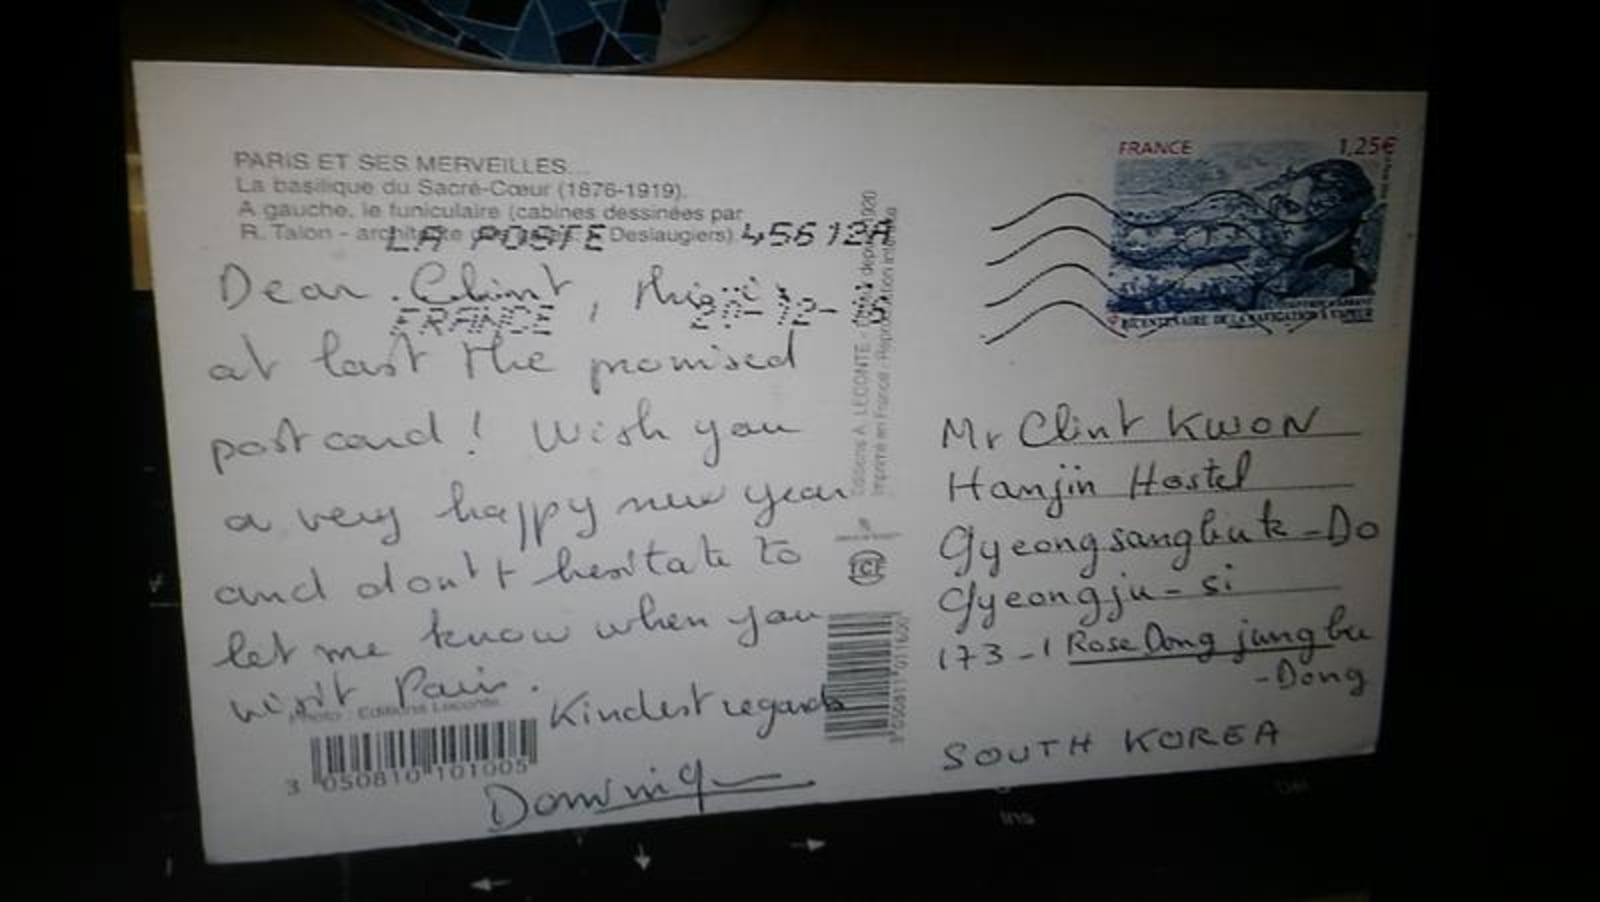 PARIS ET SES MERVEILLES...
La basilique du Sacré-Cœur (1876-1919).
A gauche, le funiculaire (cabines dessinées par
R. Talon - architecte Deslaugiers).
LA POSTE 45612A
FRANCE 12-16
Dear Clint, this is
at last the promised
postcard! Wish you
a very happy new year
and don't hesitate to
let me know when you
visit Paris.
Kindest regards
Dominique
Photo : Editions Leconte
3 050810 101005
Editions A. LECONTE
Imprimé en France - Reproduction
FRANCE 1,25€
BICENTENAIRE DE LA NAVIGATION À VAPEUR
Mr Clint KWON
Hanjin Hostel
Gyeongsangbuk-Do
Gyeongju-si
173-1 Rose Dong jungbu
-Dong
SOUTH KOREA
Ins
Del